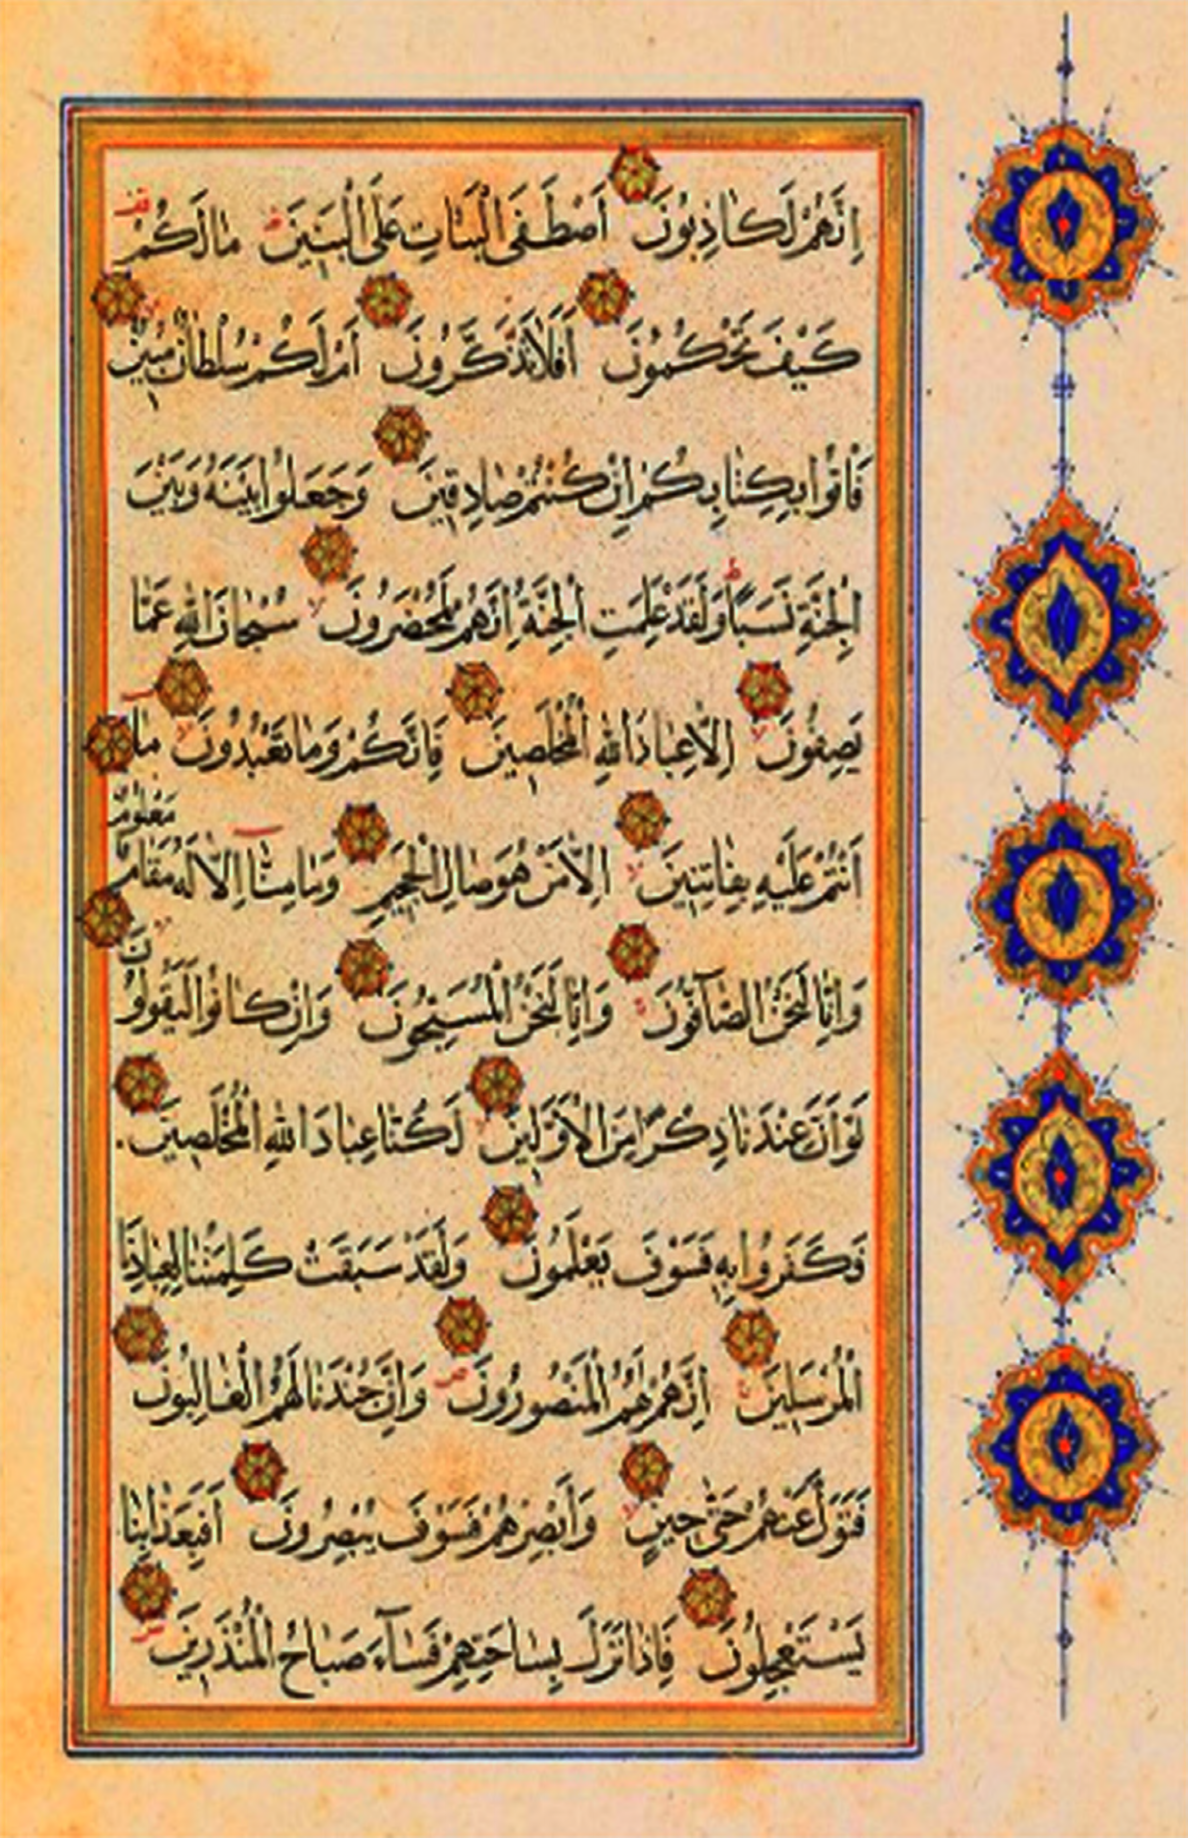 اِنَّهُمْ لَكَاذِبُونَ اَصْطَفَى الْبَنَاتِ عَلَى الْبَنِينَ مَا لَكُمْ
كَيْفَ تَحْكُمُونَ اَفَلَا تَذَكَّرُونَ اَمْ لَكُمْ سُلْطَانٌ مُبِينٌ
فَأْتُوا بِكِتَابِكُمْ اِنْ كُنْتُمْ صَادِقِينَ وَجَعَلُوا بَيْنَهُ وَبَيْنَ
الْجِنَّةِ نَسَبًا وَلَقَدْ عَلِمَتِ الْجِنَّةُ اِنَّهُمْ لَمُحْضَرُونَ سُبْحَانَ اللّٰهِ عَمَّا
يَصِفُونَ اِلَّا عِبَادَ اللّٰهِ الْمُخْلَصِينَ فَاِنَّكُمْ وَمَا تَعْبُدُونَ مَا
اَنْتُمْ عَلَيْهِ بِفَاتِنِينَ اِلَّا مَنْ هُوَ صَالِ الْجَحِيمِ وَمَا مِنَّا اِلَّا لَهُ مَقَامٌ مَعْلُومٌ
وَاِنَّا لَنَحْنُ الصَّآفُّونَ وَاِنَّا لَنَحْنُ الْمُسَبِّحُونَ وَاِنْ كَانُوا لَيَقُولُونَ
لَوْ اَنَّ عِنْدَنَا ذِكْرًا مِنَ الْاَوَّلِينَ لَكُنَّا عِبَادَ اللّٰهِ الْمُخْلَصِينَ
فَكَفَرُوا بِهِ فَسَوْفَ يَعْلَمُونَ وَلَقَدْ سَبَقَتْ كَلِمَتُنَا لِعِبَادِنَا
الْمُرْسَلِينَ اِنَّهُمْ لَهُمُ الْمَنْصُورُونَ وَاِنَّ جُنْدَنَا لَهُمُ الْغَالِبُونَ
فَتَوَلَّ عَنْهُمْ حَتّٰى حِينٍ وَاَبْصِرْهُمْ فَسَوْفَ يُبْصِرُونَ اَفَبِعَذَابِنَا
يَسْتَعْجِلُونَ فَاِذَا نَزَلَ بِسَاحَتِهِمْ فَسَآءَ صَبَاحُ الْمُنْذَرِينَ